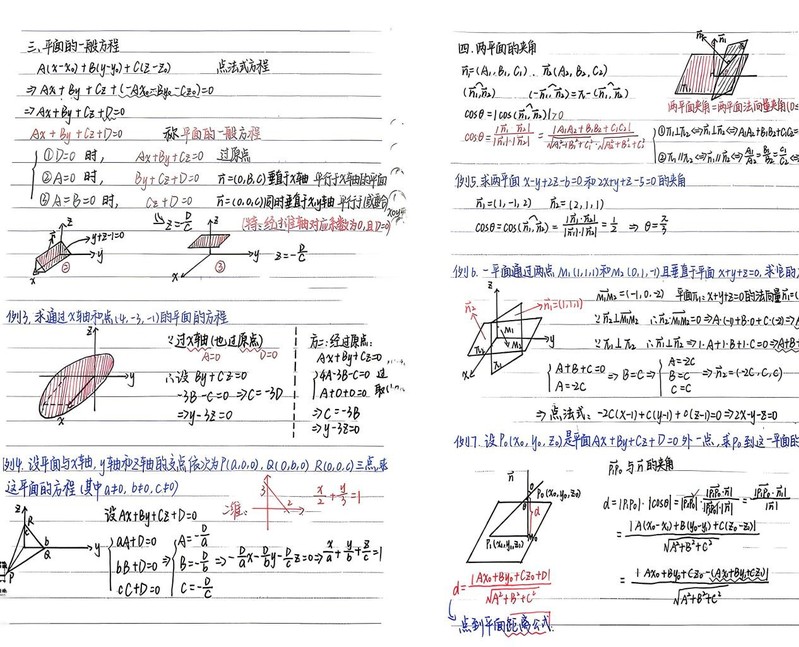 三、平面的一般方程
A(x-x₀)+B(y-y₀)+C(z-z₀) 点法式方程
⇒Ax+By+Cz+(-Ax₀-By₀-Cz₀)=0
⇒Ax+By+Cz+D=0
Ax+By+Cz+D=0 称平面的一般方程
①D=0 时, Ax+By+Cz=0 过原点
②A=0 时, By+Cz+D=0 n⃗=(0,B,C)垂直于x轴 平行于x轴的平面
③A=B=0 时, Cz+D=0 n⃗=(0,0,C)同时垂直于x,y轴 平行于(或重合)xoy
(特:经过谁轴对应系数为0,且D=0)
z y+z-1=0 y x ②
z y x ③ z=-D/C
例3.求通过x轴和点(4,-3,-1)的平面的方程
z y x
∵过x轴(也过原点)
A=0 D=0
∴设 By+Cz=0
-3B-C=0⇒C=-3B
⇒y-3z=0
方二:经过原点:
Ax+By+Cz=0
4A-3B-C=0 过
A+0+0=0 取
⇒C=-3B
⇒y-3z=0
例4.设平面与x轴,y轴和z轴的交点依次为P(a,0,0),Q(0,b,0) R(0,0,c)三点,求
这平面的方程(其中a≠0,b≠0,c≠0)
二维: 3 2 x/2+y/3=1
z R c b Q y P
设Ax+By+Cz+D=0
aA+D=0 A=-D/a
bB+D=0 ⇒ B=-D/b ⇒-D/a x-D/b y-D/c z=0⇒x/a+y/b+z/c=1
cC+D=0 C=-D/c
四.两平面的夹角
n⃗₁=(A₁,B₁,C₁)、n⃗₂(A₂,B₂,C₂)
(n⃗₁,n⃗₂) (-n⃗₁,n⃗₂)=π-(n⃗₁,n⃗₂)
cosθ=|cos(n⃗₁,n⃗₂)|≥0
两平面夹角=两平面法向量夹角(0≤
cosθ=|n⃗₁·n⃗₂|/|n⃗₁|·|n⃗₂|=|A₁A₂+B₁B₂+C₁C₂|/√A₁²+B₁²+C₁²·√A₂²+B₂²+C₂²
①π₁⊥π₂⇔n⃗₁⊥n⃗₂⇔A₁A₂+B₁B₂+C₁C₂=
②π₁//π₂⇔n⃗₁//n⃗₂⇔A₁/A₂=B₁/B₂=C₁/C₂
例5.求两平面 x-y+2z-6=0和2x+y+z-5=0的夹角
n⃗₁=(1,-1,2) n⃗₂=(2,1,1)
cosθ=cos(n⃗₁,n⃗₂)=|n⃗₁·n⃗₂|/|n⃗₁|·|n⃗₂|=1/2 ⇒ θ=π/3
例6.一平面通过两点M₁(1,1,1)和M₂(0,1,-1)且垂直于平面x+y+z=0,求它的
z n⃗₂ n⃗₁=(1,1,1) M₁ M₂ y π₂ π₁ x
M₁M₂=(-1,0,-2) 平面π₁:x+y+z=0的法向量n⃗₁=(
∵n⃗₂⊥M₁M₂ ∴n⃗₂·M₁M₂=0⇒A·(-1)+B·0+C·(-2)⇒
∵π₁⊥π₂ ∴n⃗₁⊥n⃗₂⇒1·A+1·B+1·C=0⇒A+B+
A+B+C=0 A=-2C
A=-2C ⇒B=C⇒ B=C ⇒n⃗₂=(-2C,C,C)
C=C
⇒点法式:-2C(x-1)+C(y-1)+C(z-1)=0⇒2x-y-z=0
例7.设P₀(x₀,y₀,z₀)是平面Ax+By+Cz+D=0外一点,求P₀到这一平面的
P₁P₀与n⃗的夹角
n⃗ P₀(x₀,y₀,z₀) θ d P₁(x₁,y₁,z₁)
d=|P₁P₀|·|cosθ|=|P₁P₀|·|P₁P₀·n⃗|/|P₁P₀|·|n⃗|=|P₁P₀·n⃗|/|n⃗|
=|A(x₀-x₁)+B(y₀-y₁)+C(z₀-z₁)|/√A²+B²+C²
=|Ax₀+By₀+Cz₀-(Ax₁+By₁+Cz₁)|/√A²+B²+C²
d=|Ax₀+By₀+Cz₀+D|/√A²+B²+C²
点到平面距离公式